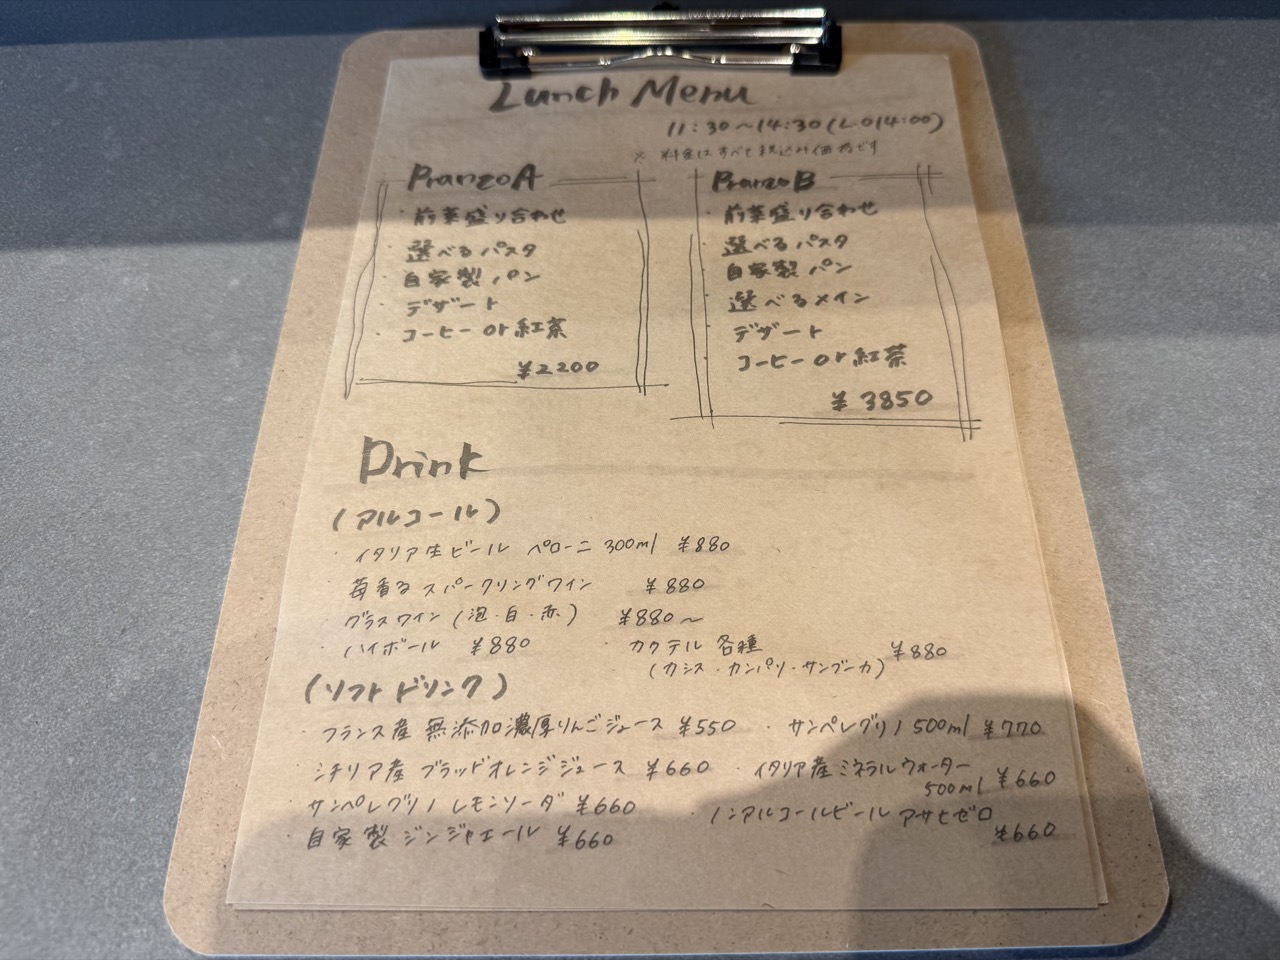 Lunch Menu
11:30～14:30(L.O14:00)
※ 料金はすべて税込み価格です
Pranzo A
・前菜盛り合わせ
・選べるパスタ
・自家製パン
・デザート
・コーヒー or 紅茶
¥2200
Pranzo B
・前菜盛り合わせ
・選べるパスタ
・自家製パン
・選べるメイン
・デザート
・コーヒー or 紅茶
¥3850
Drink
(アルコール)
・イタリア生ビール ペローニ 300ml ¥880
・苺香る スパークリングワイン ¥880
・グラスワイン (泡・白・赤) ¥880～
・ハイボール ¥880
・カクテル 各種 ¥880
(カシス・カンパリ・サンブーカ)
(ソフトドリンク)
・フランス産 無添加濃厚りんごジュース ¥550
・サンペレグリノ 500ml ¥770
・シチリア産 ブラッドオレンジジュース ¥660
・イタリア産 ミネラルウォーター
500ml ¥660
・サンペレグリノ レモンソーダ ¥660
・ノンアルコールビール アサヒゼロ
¥660
・自家製 ジンジャエール ¥660